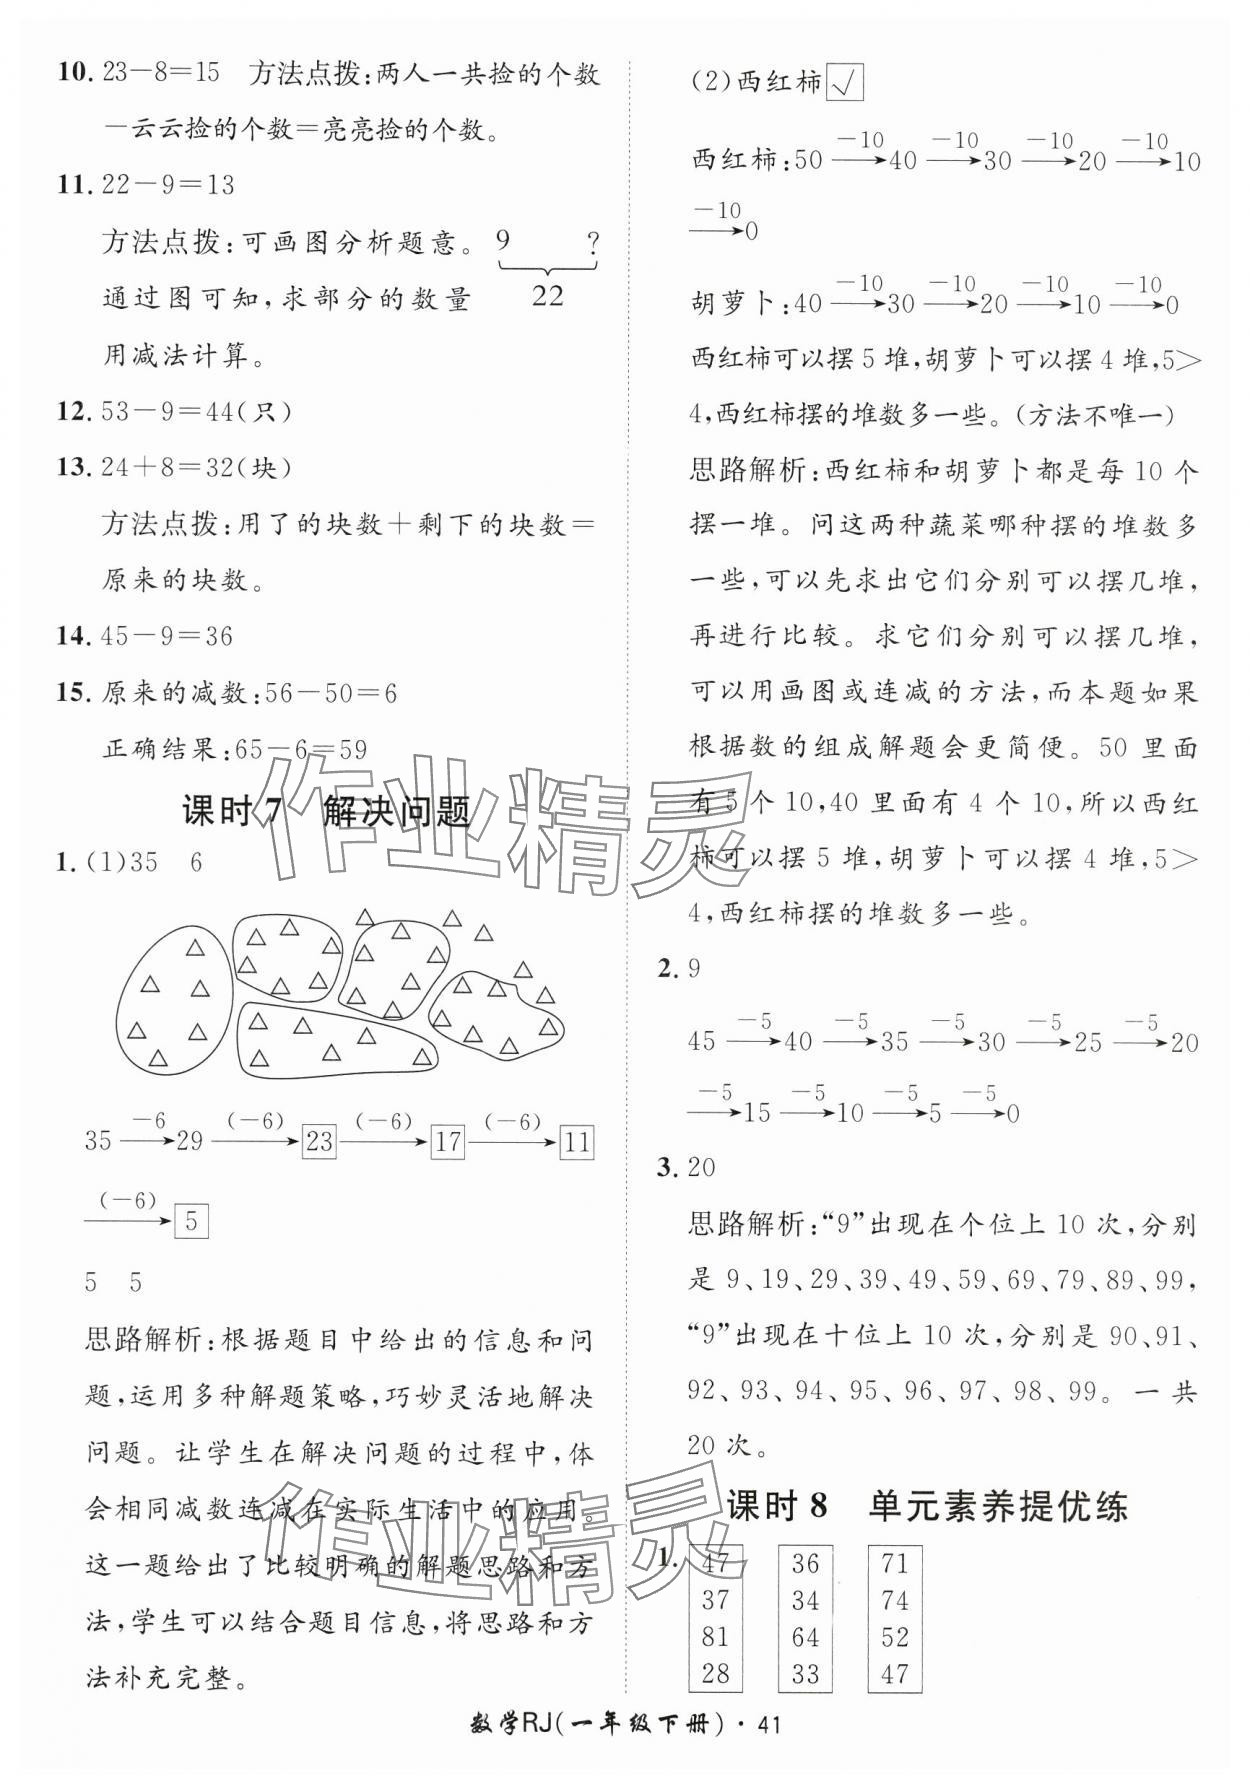 10. 23－8＝15　方法点拨:两人一共捡的个数
－云云捡的个数＝亮亮捡的个数。
11. 22－9＝13
方法点拨:可画图分析题意。 9 ?
通过图可知,求部分的数量 22
用减法计算。
12. 53－9＝44(只)
13. 24＋8＝32(块)
方法点拨:用了的块数＋剩下的块数＝
原来的块数。
14. 45－9＝36
15. 原来的减数:56－50＝6
正确结果:65－6＝59
课时 7　解决问题
1. (1)35　6
－6 (－6) (－6) (－6)
35 → 29 → 23 → 17 → 11
(－6)
→ 5
5　5
思路解析:根据题目中给出的信息和问
题,运用多种解题策略,巧妙灵活地解决
问题。让学生在解决问题的过程中,体
会相同减数连减在实际生活中的应用。
这一题给出了比较明确的解题思路和方
法,学生可以结合题目信息,将思路和方
法补充完整。
(2)西红柿 √
－10 －10 －10 －10
西红柿:50 → 40 → 30 → 20 → 10
－10
→ 0
－10 －10 －10 －10
胡萝卜:40 → 30 → 20 → 10 → 0
西红柿可以摆 5 堆,胡萝卜可以摆 4 堆,5＞
4,西红柿摆的堆数多一些。(方法不唯一)
思路解析:西红柿和胡萝卜都是每 10 个
摆一堆。问这两种蔬菜哪种摆的堆数多
一些,可以先求出它们分别可以摆几堆,
再进行比较。求它们分别可以摆几堆,
可以用画图或连减的方法,而本题如果
根据数的组成解题会更简便。50 里面
有 5 个 10,40 里面有 4 个 10,所以西红
柿可以摆 5 堆,胡萝卜可以摆 4 堆,5＞
4,西红柿摆的堆数多一些。
2. 9
－5 －5 －5 －5 －5
45 → 40 → 35 → 30 → 25 → 20
－5 －5 －5 －5
→ 15 → 10 → 5 → 0
3. 20
思路解析:“9”出现在个位上 10 次,分别
是 9、19、29、39、49、59、69、79、89、99,
“9”出现在十位上 10 次,分别是 90、91、
92、93、94、95、96、97、98、99。一共
20 次。
课时 8　单元素养提优练
1. 47 36 71
37 34 74
81 64 52
28 33 47
数学RJ(一年级下册)·41
作业精灵
作业精灵